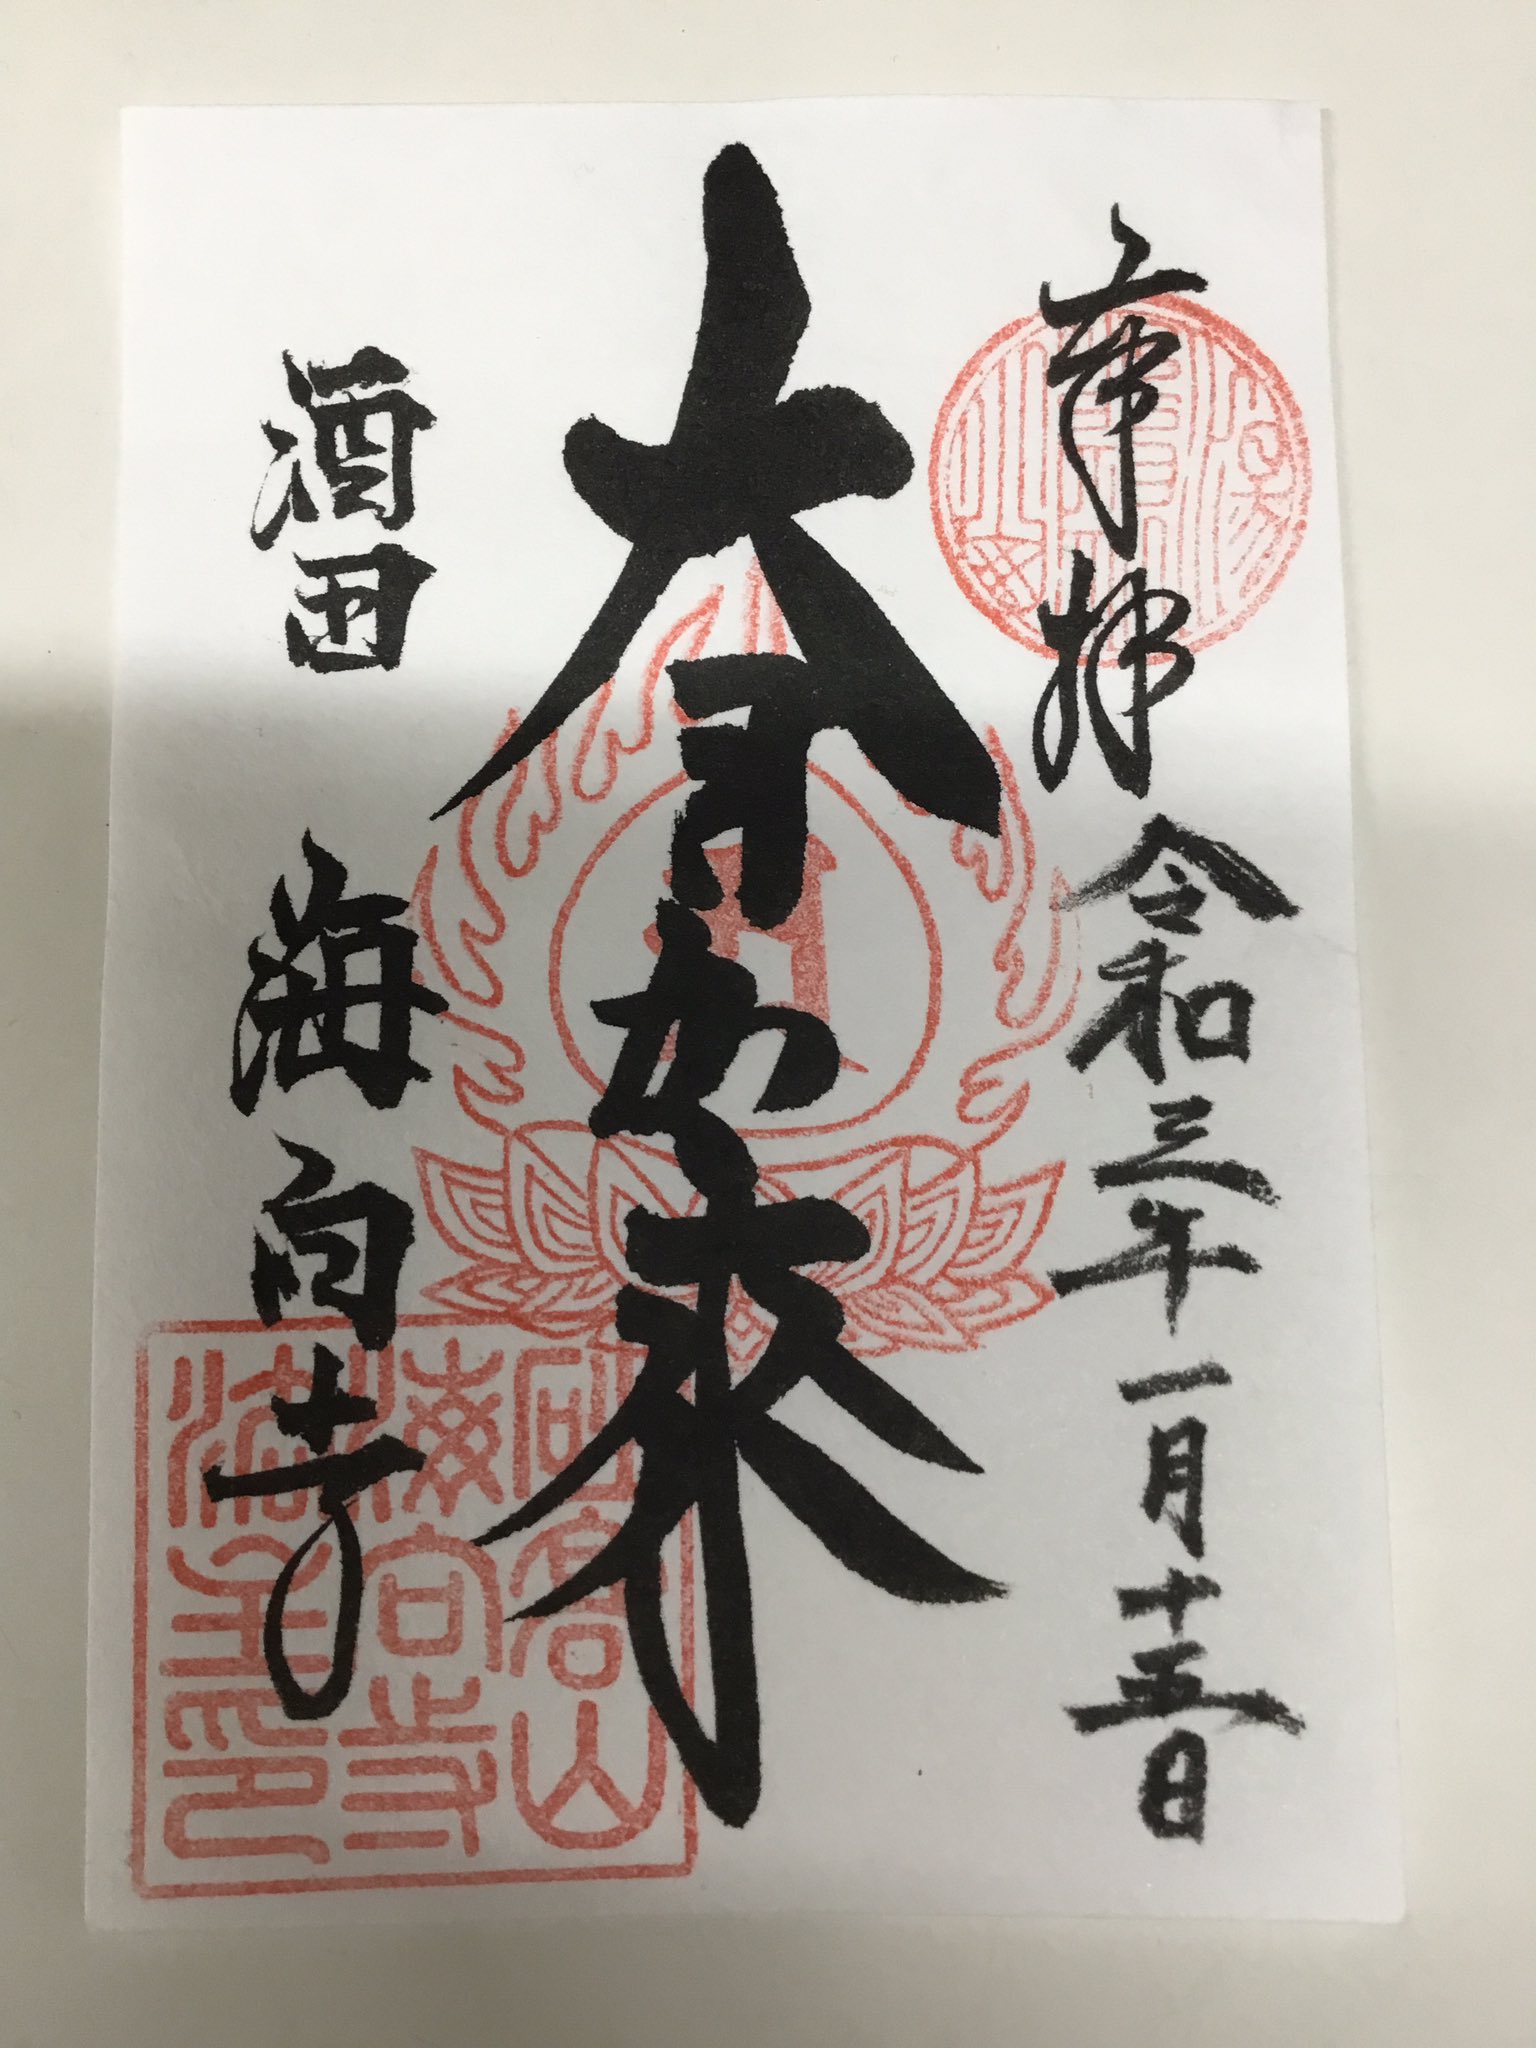 奉拝 令和三年一月十五日
大日如来
酒田 海向寺
砂高山
海向寺